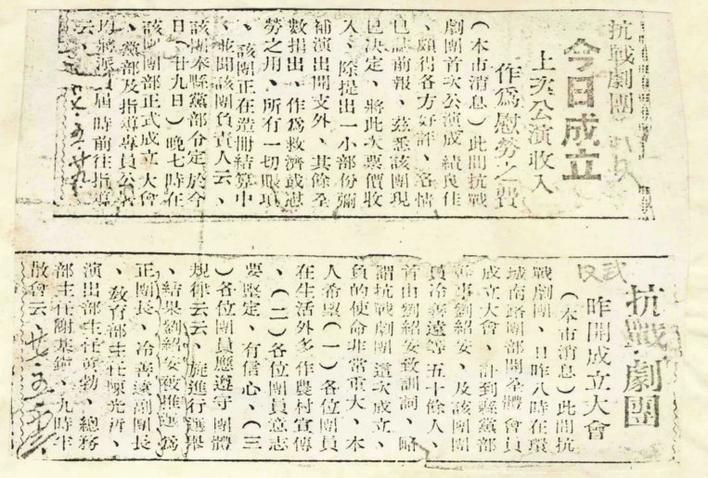 抗戰劇團
今日成立
上次公演收入
作爲慰勞之費
(本市消息)此間抗戰
劇團首次公演成績良佳
、頗得各方好評、各情
已誌前報、茲悉該團現
已決定、將此次票價收
入、除提出一小部份彌
補演出開支外、其餘全
數捐出、作爲救濟或慰
勞之用、所有一切賬項
、該團正在造冊結算中
、並聞該團負責人云、
該團奉縣黨部令定於今
日(廿九日)晚七時在
該團團部正式成立大會
、黨部及指導專員公署
均將派 屆時前往指導
云、
廿、五、廿九
抗戰劇團
昨開成立大會
(本市消息)此間抗
戰劇團、日昨八時在環
城南路團部開全體會員
成立大會、計到縣黨部
幹事劉紹安、及該團團
員冷善遠等五十餘人、
首由劉紹安致訓詞、略
謂抗戰劇團這次成立、
負的使命非常重大、本
人希望(一)各位團員
在生活外多作農村宣傳
、(二)各位團員意志
要堅定、有信心、(三
)各位團員應遵守團體
規律云云、旋進行選舉
、結果劉紹安被推選爲
正團長、冷善遠副團長
、敎育部主任陳光所、
演出部主任黃勃、總務
部主任謝 、九時半
散會云、